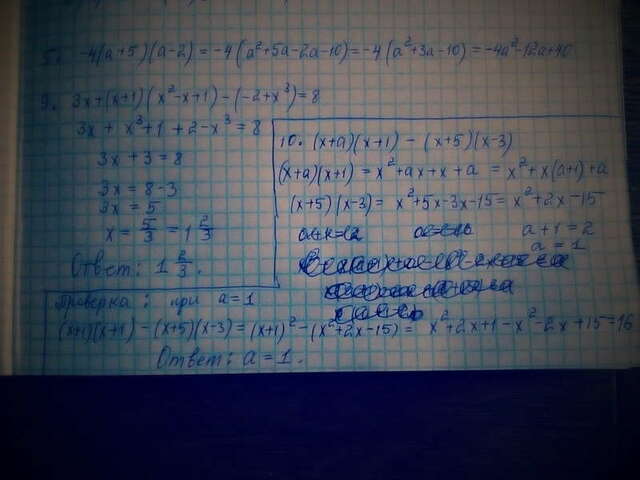 5. -4(a+5)(a-2) = -4(a²+5a-2a-10) = -4(a²+3a-10) = -4a²-12a+40
9. 3x+(x+1)(x²-x+1)-(-2+x³)=8
3x + x³+1 +2-x³ = 8
3x + 3 = 8
3x = 8-3
3x = 5
x = 5/3 = 1 2/3
Ответ: 1 2/3.
10. (x+a)(x+1) - (x+5)(x-3)
(x+a)(x+1) = x²+ax+x+a = x²+x(a+1)+a
(x+5)(x-3) = x²+5x-3x-15 = x²+2x-15
a+1=2
a = 1
Проверка: при a=1
(x+1)(x+1)-(x+5)(x-3) = (x+1)²-(x²+2x-15) = x²+2x+1-x²-2x+15=16
Ответ: a=1.